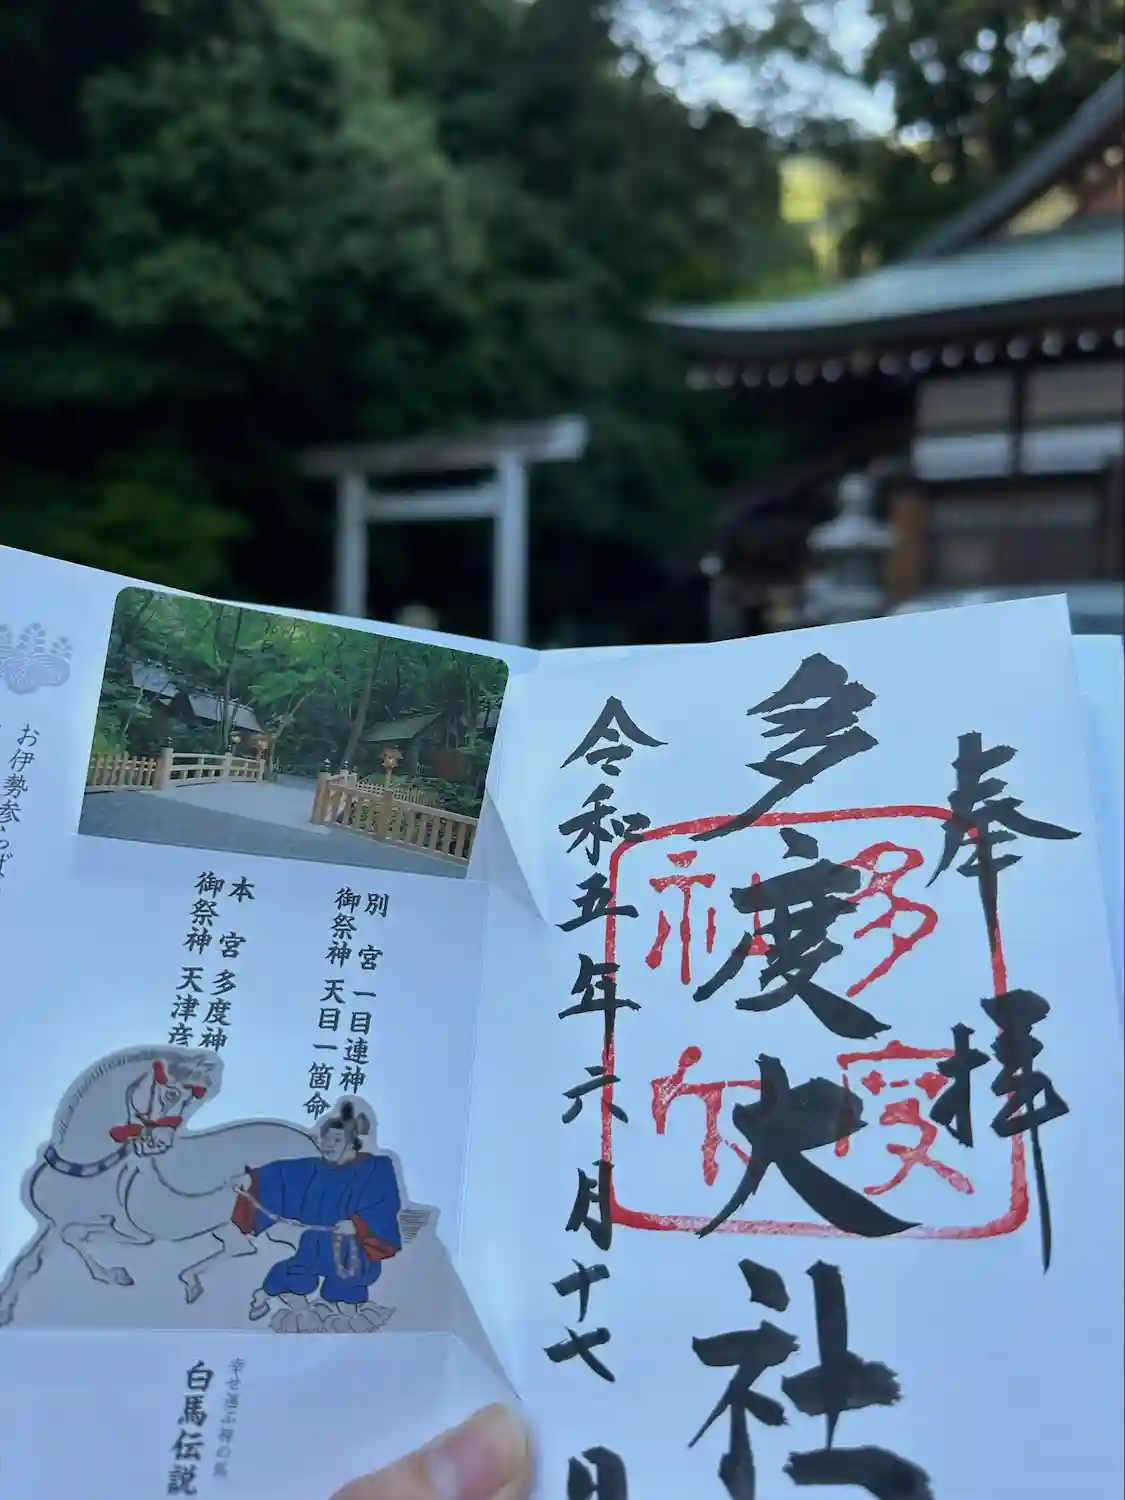 奉拝
多度大社
多度
神社
令和五年六月十七日
別宮 一目連神
御祭神 天目一箇命
本宮 多度神
御祭神 天津彦
お伊勢参らば
幸せ運ぶ神の馬
白馬伝説